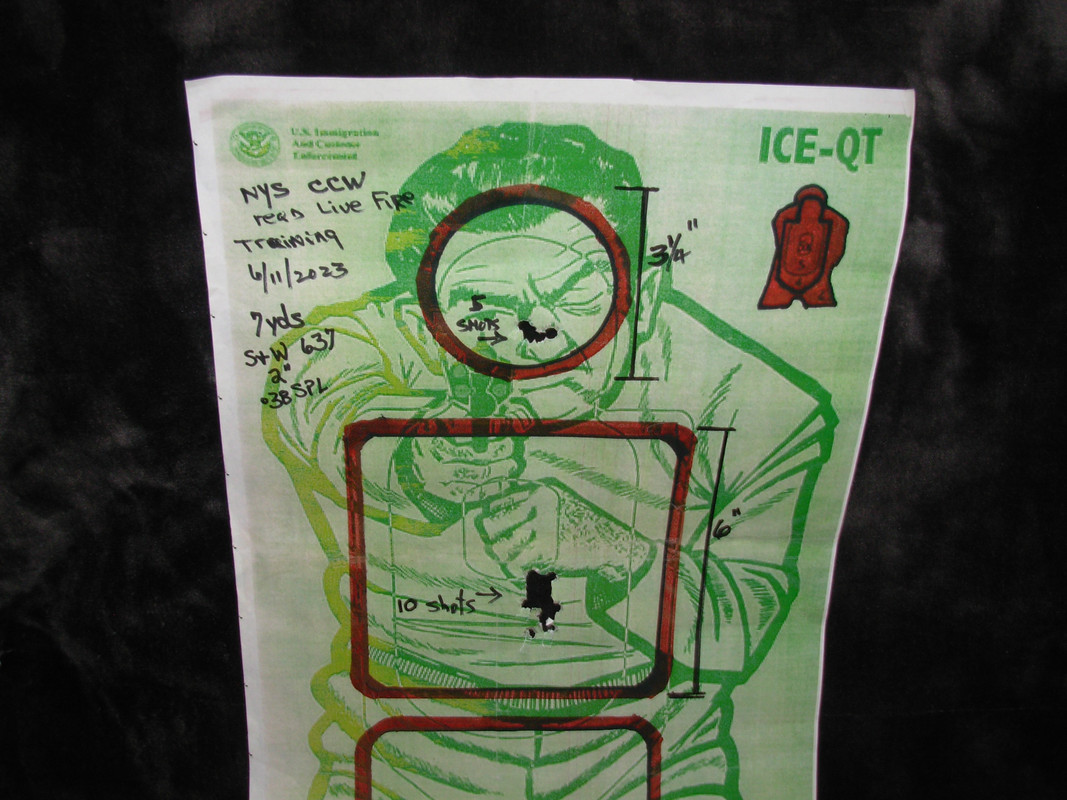 U.S. Immigration
And Customs
Enforcement
ICE-QT
NYS CCW
req'd Live Fire
Training
6/11/2023
7yds
S+W 637
2"
.038 SPL
3 1/4"
5
SHOTS →
6"
10 shots →